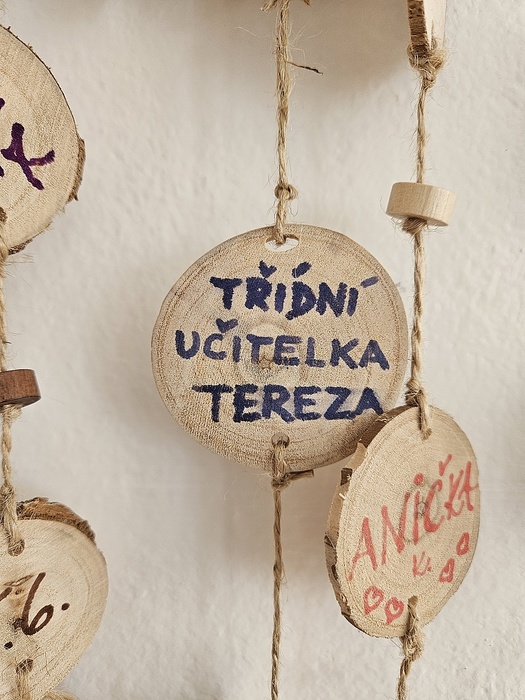 TŘÍDNÍ
UČITELKA
TEREZA
ANIČKA
K.
.6.